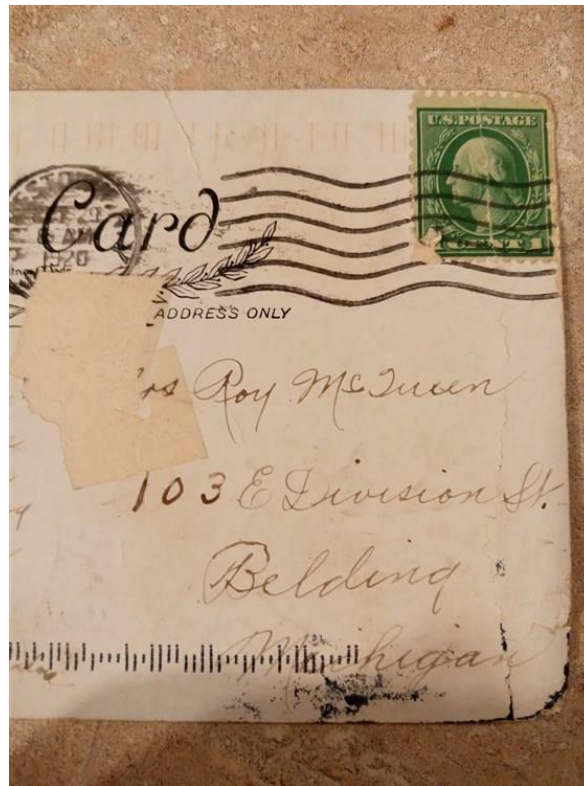 U.S.POSTAGE
Card
AM
1920
ADDRESS ONLY
Roy McQueen
103 E Division St.
Belding
Michigan